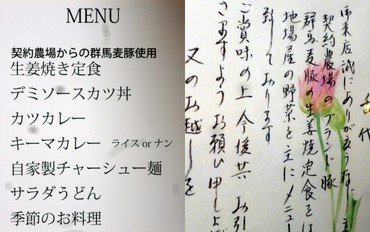 MENU
契約農場からの群馬麦豚使用
生姜焼き定食
デミソースカツ丼
カツカレー
キーマカレー ライス or ナン
自家製チャーシュー麺
サラダうどん
季節のお料理
千代
御来店誠にありがとう
契約農場のブランド豚
群馬麦豚の生姜焼定食をは
地場産の野菜を主にメニュー
到しております
ご賞味の上 今後共 お引
さいますようお願い申し上げ
又のお越しを